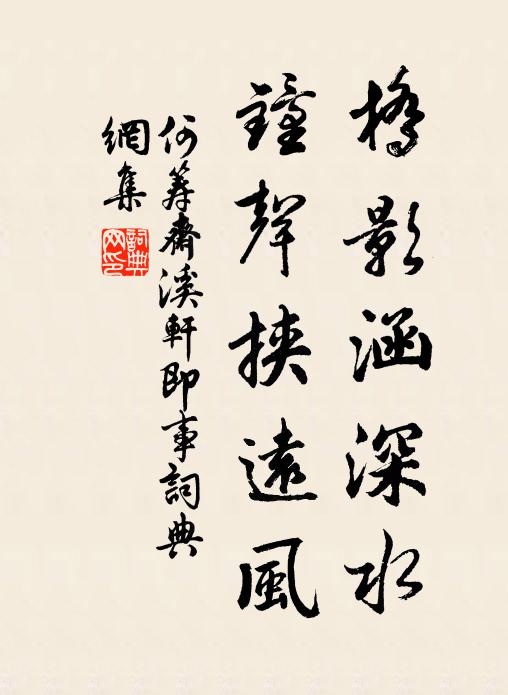 橋影涵深水
鐘聲挾遠風
何籌齋溪軒即事詞典
網集
詞典
网印